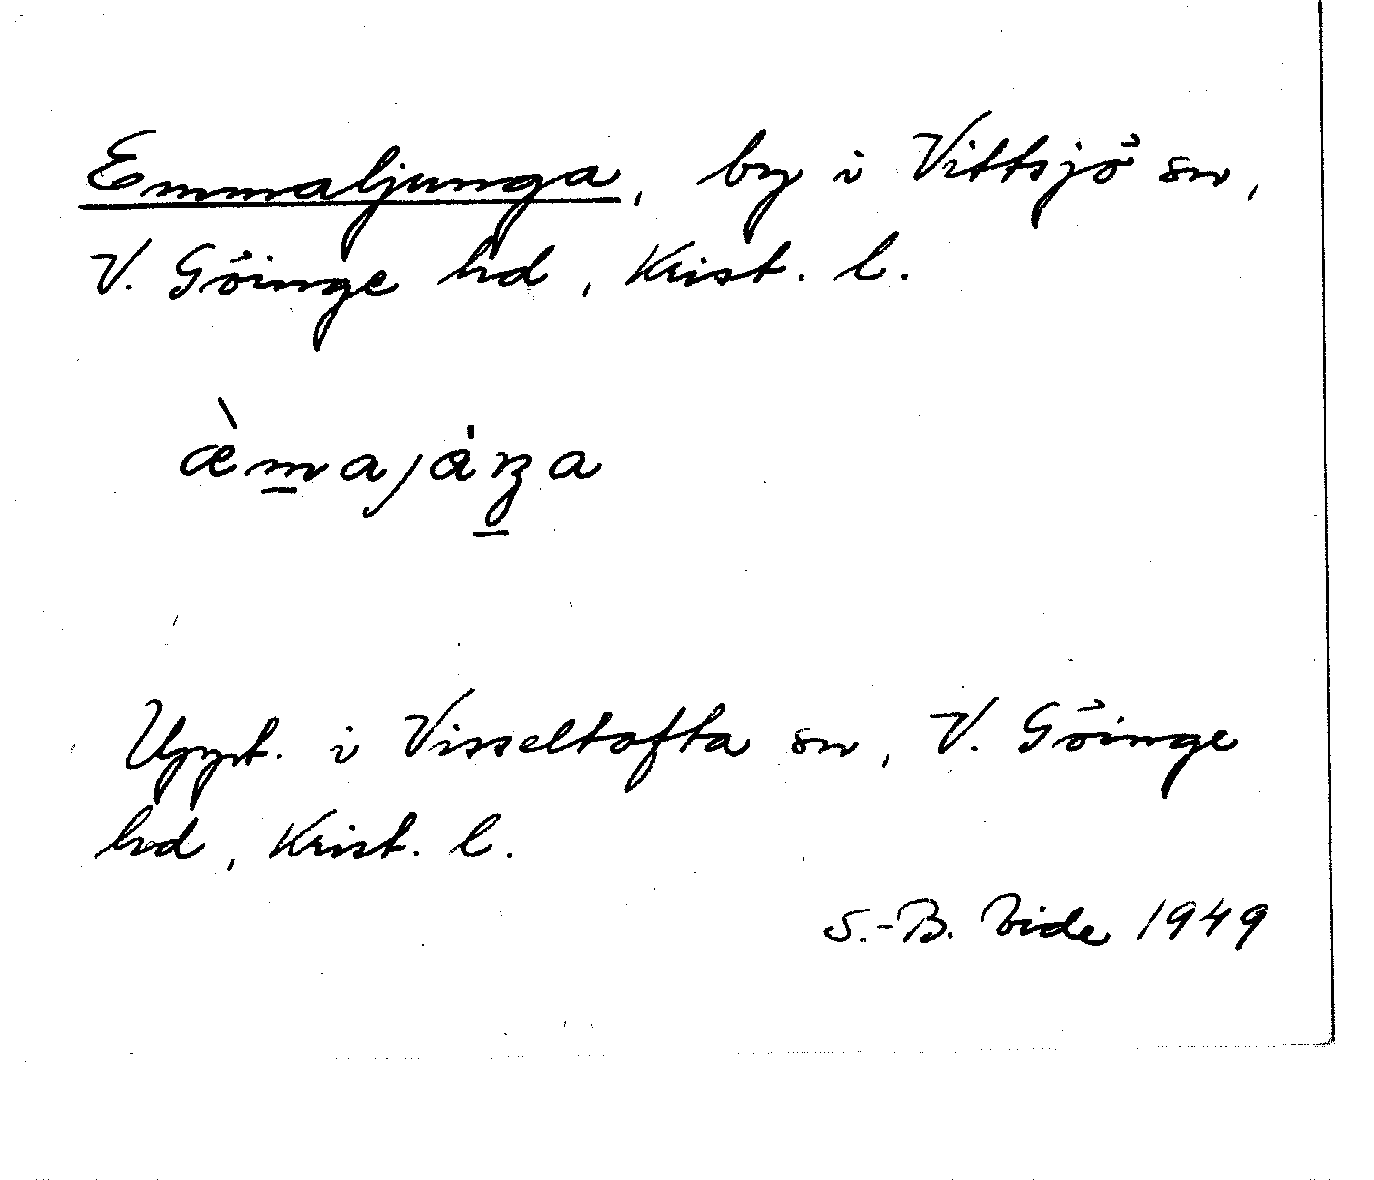 Emmaljunga, by i Vittsjö sn,
V. Göinge hd, Krist. l.
æ̀m̲ajáŋ̲a
Uppt. i Visseltofta sn, V. Göinge
hd, Krist. l.
S.-B. Vide 1949